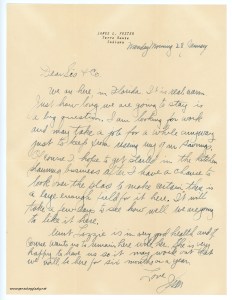 JAMES L. FOSTER
Terre Haute
Indiana
Monday Morning 28 January
Dear Les & Co.
We are here in Florida. It is real warm
Just how long we are going to stay is
a big question. I am looking for work
and may take a job for a while anyway
just to keep from using any of our savings.
Of course I hope to get started in the kitchen
business after I have a chance to
look over the place to make certain there is
a large enough field for it here. It will
take a few days to see how well we are going
to like it here.
Aunt Lizzie is in very good health and
wants us to remain here with her. She is very
happy to have us so it may work out that
we will be here for six months or a year.
Love,
Jim